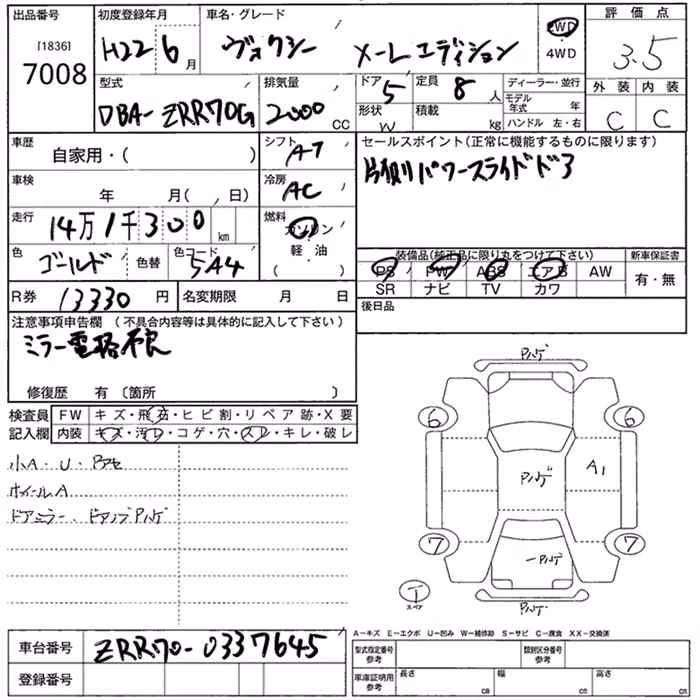 出品番号 初度登録年月 車名・グレード 2WD 評価点
[1836] H22 6月 ヴォクシー X-L エディション 4WD 3.5
7008
型式 排気量 ドア 5 定員 8人 ディーラー・並行 外装 内装
DBA-ZRR70G 2000CC 形状 W 積載 kg モデル年式 年 C C
ハンドル 左・右
車歴 自家用・( ) シフト AT セールスポイント(正常に機能するものに限ります)
片側パワースライドドア
車検 年 月( , 日) 冷房 AC
走行 14万1千300km 燃料 ガソリン
軽油
( )
色 ゴールド 色替 色コード 5A4 装備品(純正品に限り丸をつけて下さい) 新車保証書
PS PW ABS エアB AW 有・無
SR ナビ TV カワ
R券 13330円 名変期限 月 日 後日品
注意事項申告欄 (不具合内容等は具体的に記入して下さい)
ミラー電格不良
修復歴 有 〔箇所 〕
検査員 FW キズ・飛石・ヒビ割・リペア跡・X要
記入欄 内装 キズ・汚レ・コゲ・穴・スレ・キレ・破レ
小A・U・
ホイールA
ドアミラー・ドアノブ ハンゲ
ハンゲ
6 6
ハンゲ A1
7 7
ーハンゲ
T
スペア
ハンゲ
A-キズ E-エクボ U-凹み W-補修跡 S-サビ C-腐食 XX-交換済
車台番号 ZRR70-0337645 型式指定番号 参考 類別区分番号 参考
登録番号 車庫証明用 参考 長さ cm 幅 cm 高さ cm